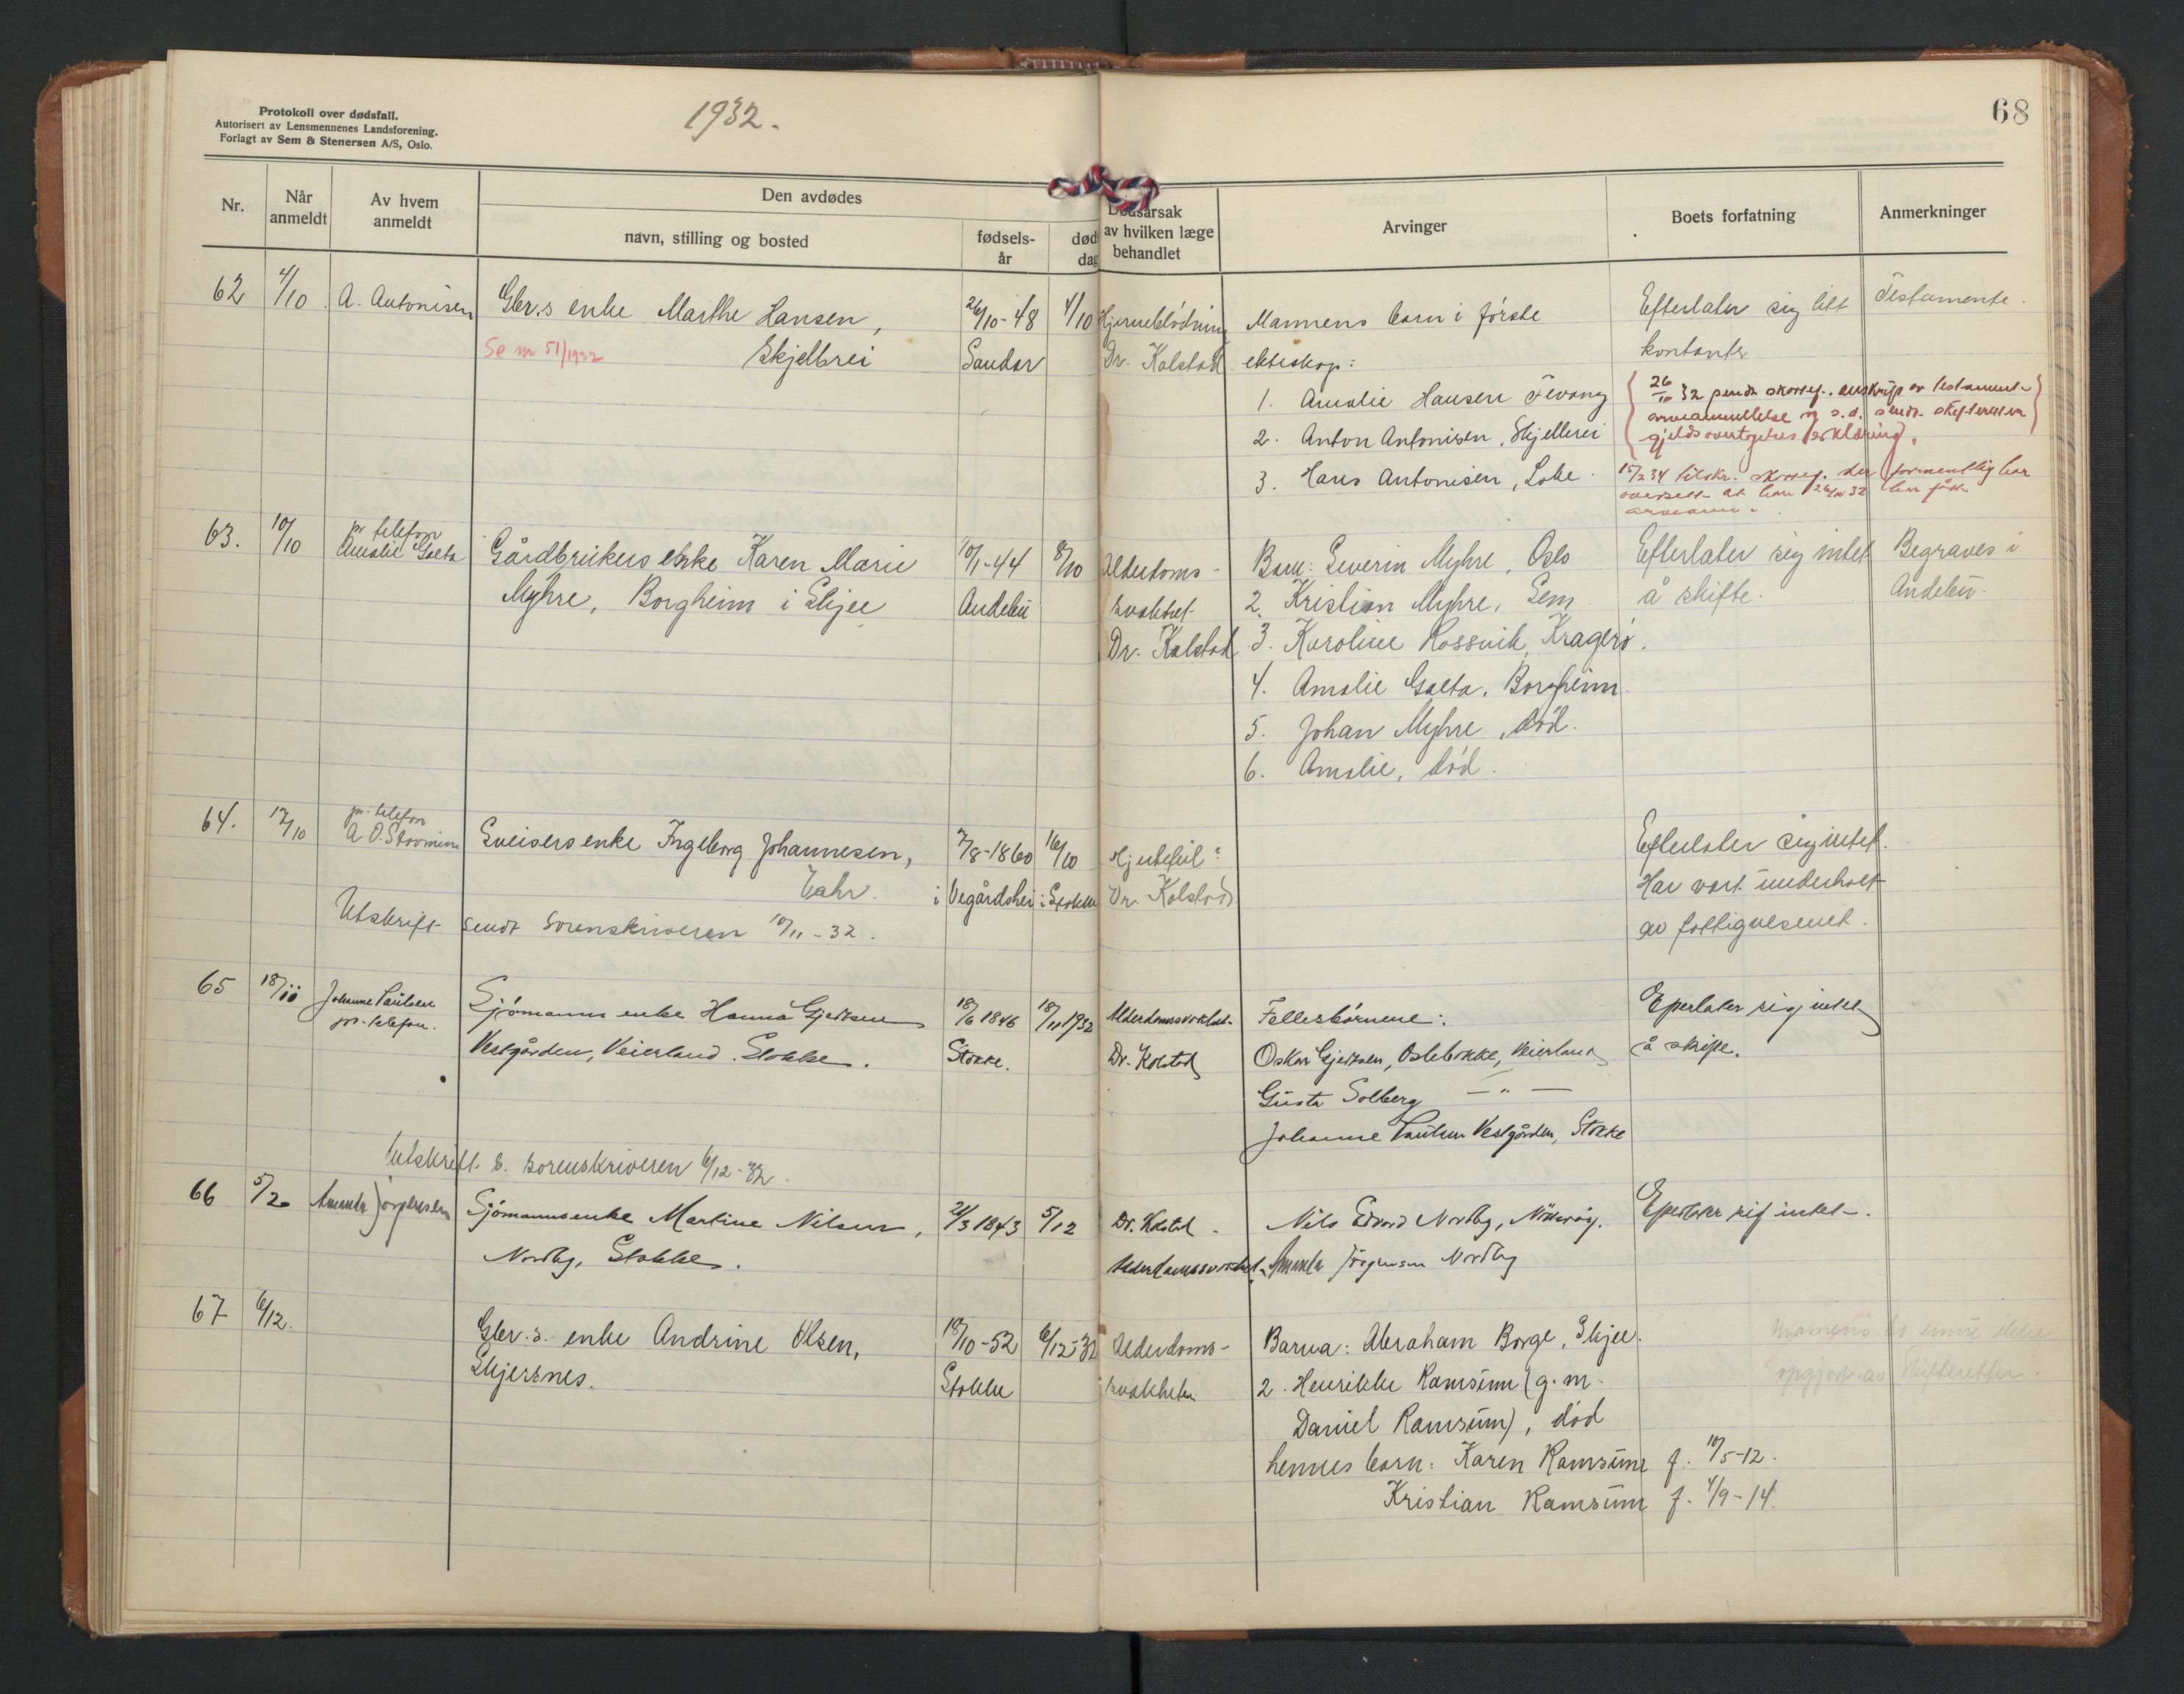 Protokoll over dødsfall.
Autorisert av Lensmennenes Landsforening.
Forlagt av Sem & Stenersen A/S, Oslo.
1932.
68
Nr.
Når anmeldt
Av hvem anmeldt
Den avdødes
navn, stilling og bosted
fødsels-år
død dag
Dødsårsak av hvilken læge behandlet
Arvinger
Boets forfatning
Anmerkninger
62 4/10 A. Antonisen Gbr.s enke Marthe Hansen, 26/10-48 4/10 Hjerneblødning Mannens barn i første Efterlater sig litt Testamente.
Se nr 51/1932 Skjelbrei Sandar Dr. Kolstad ekteskap: kontanter
1. Amalie Hansen Fevang
26/10 32 sendt skorsj. avskrift av testament
2. Anton Antonisen, Skjelbrei
arveanmeldelse og s.d. sendt skifteretten
gjeldsovertagelses erklæring.
3. Hans Antonisen,
15/2 34 tilskr. skorsj. der formentlig har
oversett at han 26/10 32 har fått
63. 10/10 pr telefon Amalie Gåeta Gårdbrukers enke Karen Marie 10/1-44 8/10 Alderdoms- Barn: Severin Myhre, Oslo Efterlater sig intet Begraves i
Myhre, Borgheim i Skjee Andebu svakhet 2. Kristian Myhre, Sem å skifte. Andebu.
Dr. Kolstad 3. Karoline Rossvik, Kragerø.
4. Amalie Gåeta, Borgheim.
5. Johan Myhre, død.
6. Amalie, død.
64. 17/10 pr. telefon A. O. Sveisers enke Ingeborg Johannesen, 7/8-1860 16/10 Hjertefeil? Efterlater sig intet.
i Vegårdshei i Stokke Dr. Kolstad Har vært underholt
Utskrift sendt Sorenskriveren 10/11-32. av fattigvesenet.
65 18/11 Johanne Paulsen Sjømanns enke Hanna Gjertsen 18/6 1846 18/11 1932 Alderdomssvakhet Fellesbørnene: Efterlater sig intet
pr. telefon. Vestgården, Veierland. Stokke. Stokke. Dr. Kolstad Oskar Gjertsen, Oslebakke, Veierland å skifte.
Gusta Solberg — " —
Johanne Paulsen Vestgården, Stokke
Utskrift s. sorenskriveren 6/12-32.
66 5/12 Amanda Jørgensen Sjømannsenke Martine Nilsen, 21/3 1843 5/12 Dr. Kolstad. Nils Edvard Nordby, Nøtterøy. Efterlater sig intet.
Nordby, Stokke. Alderdomssvakhet. Amanda Jørgensen Nordby
67 6/12. Gbr.s. enke Andrine Olsen, 10/10-52 6/12-32 Alderdoms- Barna: Abraham Borge, Skjee.
Mannens bo ennu ikke
Skjersnes. Stokke svakheten 2. Henrikke Ramsum (g. m.
opgjort av Skifteretten.
Daniel Ramsum), død
hennes barn: Karen Ramsum f. 10/5-12.
Kristian Ramsum f. 4/9-14.